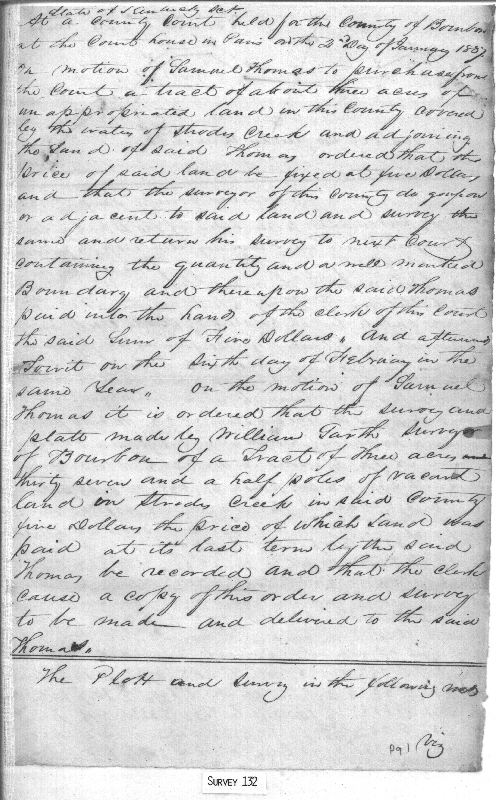 State of Kentucky Sct
At a County Court held for the County of Bourbon
at the Court house in Paris on the 2d Day of January 1837
On motion of Samuel Thomas to purchase from
the Court a tract of about three acres of
unappropriated land in this County covered
by the waters of Strodes Creek and adjoining
the Land of said Thomas ordered that the
price of said land be fixed at five Dollars
and that the surveyor of this County do go upon
or adjacent to said Land and survey the
same and return his survey to next Court
containing the quantity and a well marked
Boundary and thereupon the said Thomas
paid into the hands of the clerk of this Court
the said Sum of Five Dollars, And afterwards
Towit on the Sixth day of February in the
same Year, on the motion of Samuel
Thomas it is ordered that the survey and
platt made by William Garth Surveyor
of Bourbon of a Tract of three acres and
thirty seven and a half poles of vacant
land on Strodes Creek in said County
five Dollars the price of which Land was
paid at its last term by the said
Thomas be recorded and that the clerk
cause a copy of this order and survey
to be made and delivered to the said
Thomas,
The Plott and Survey in the following words
Viz
pg 1
SURVEY 132